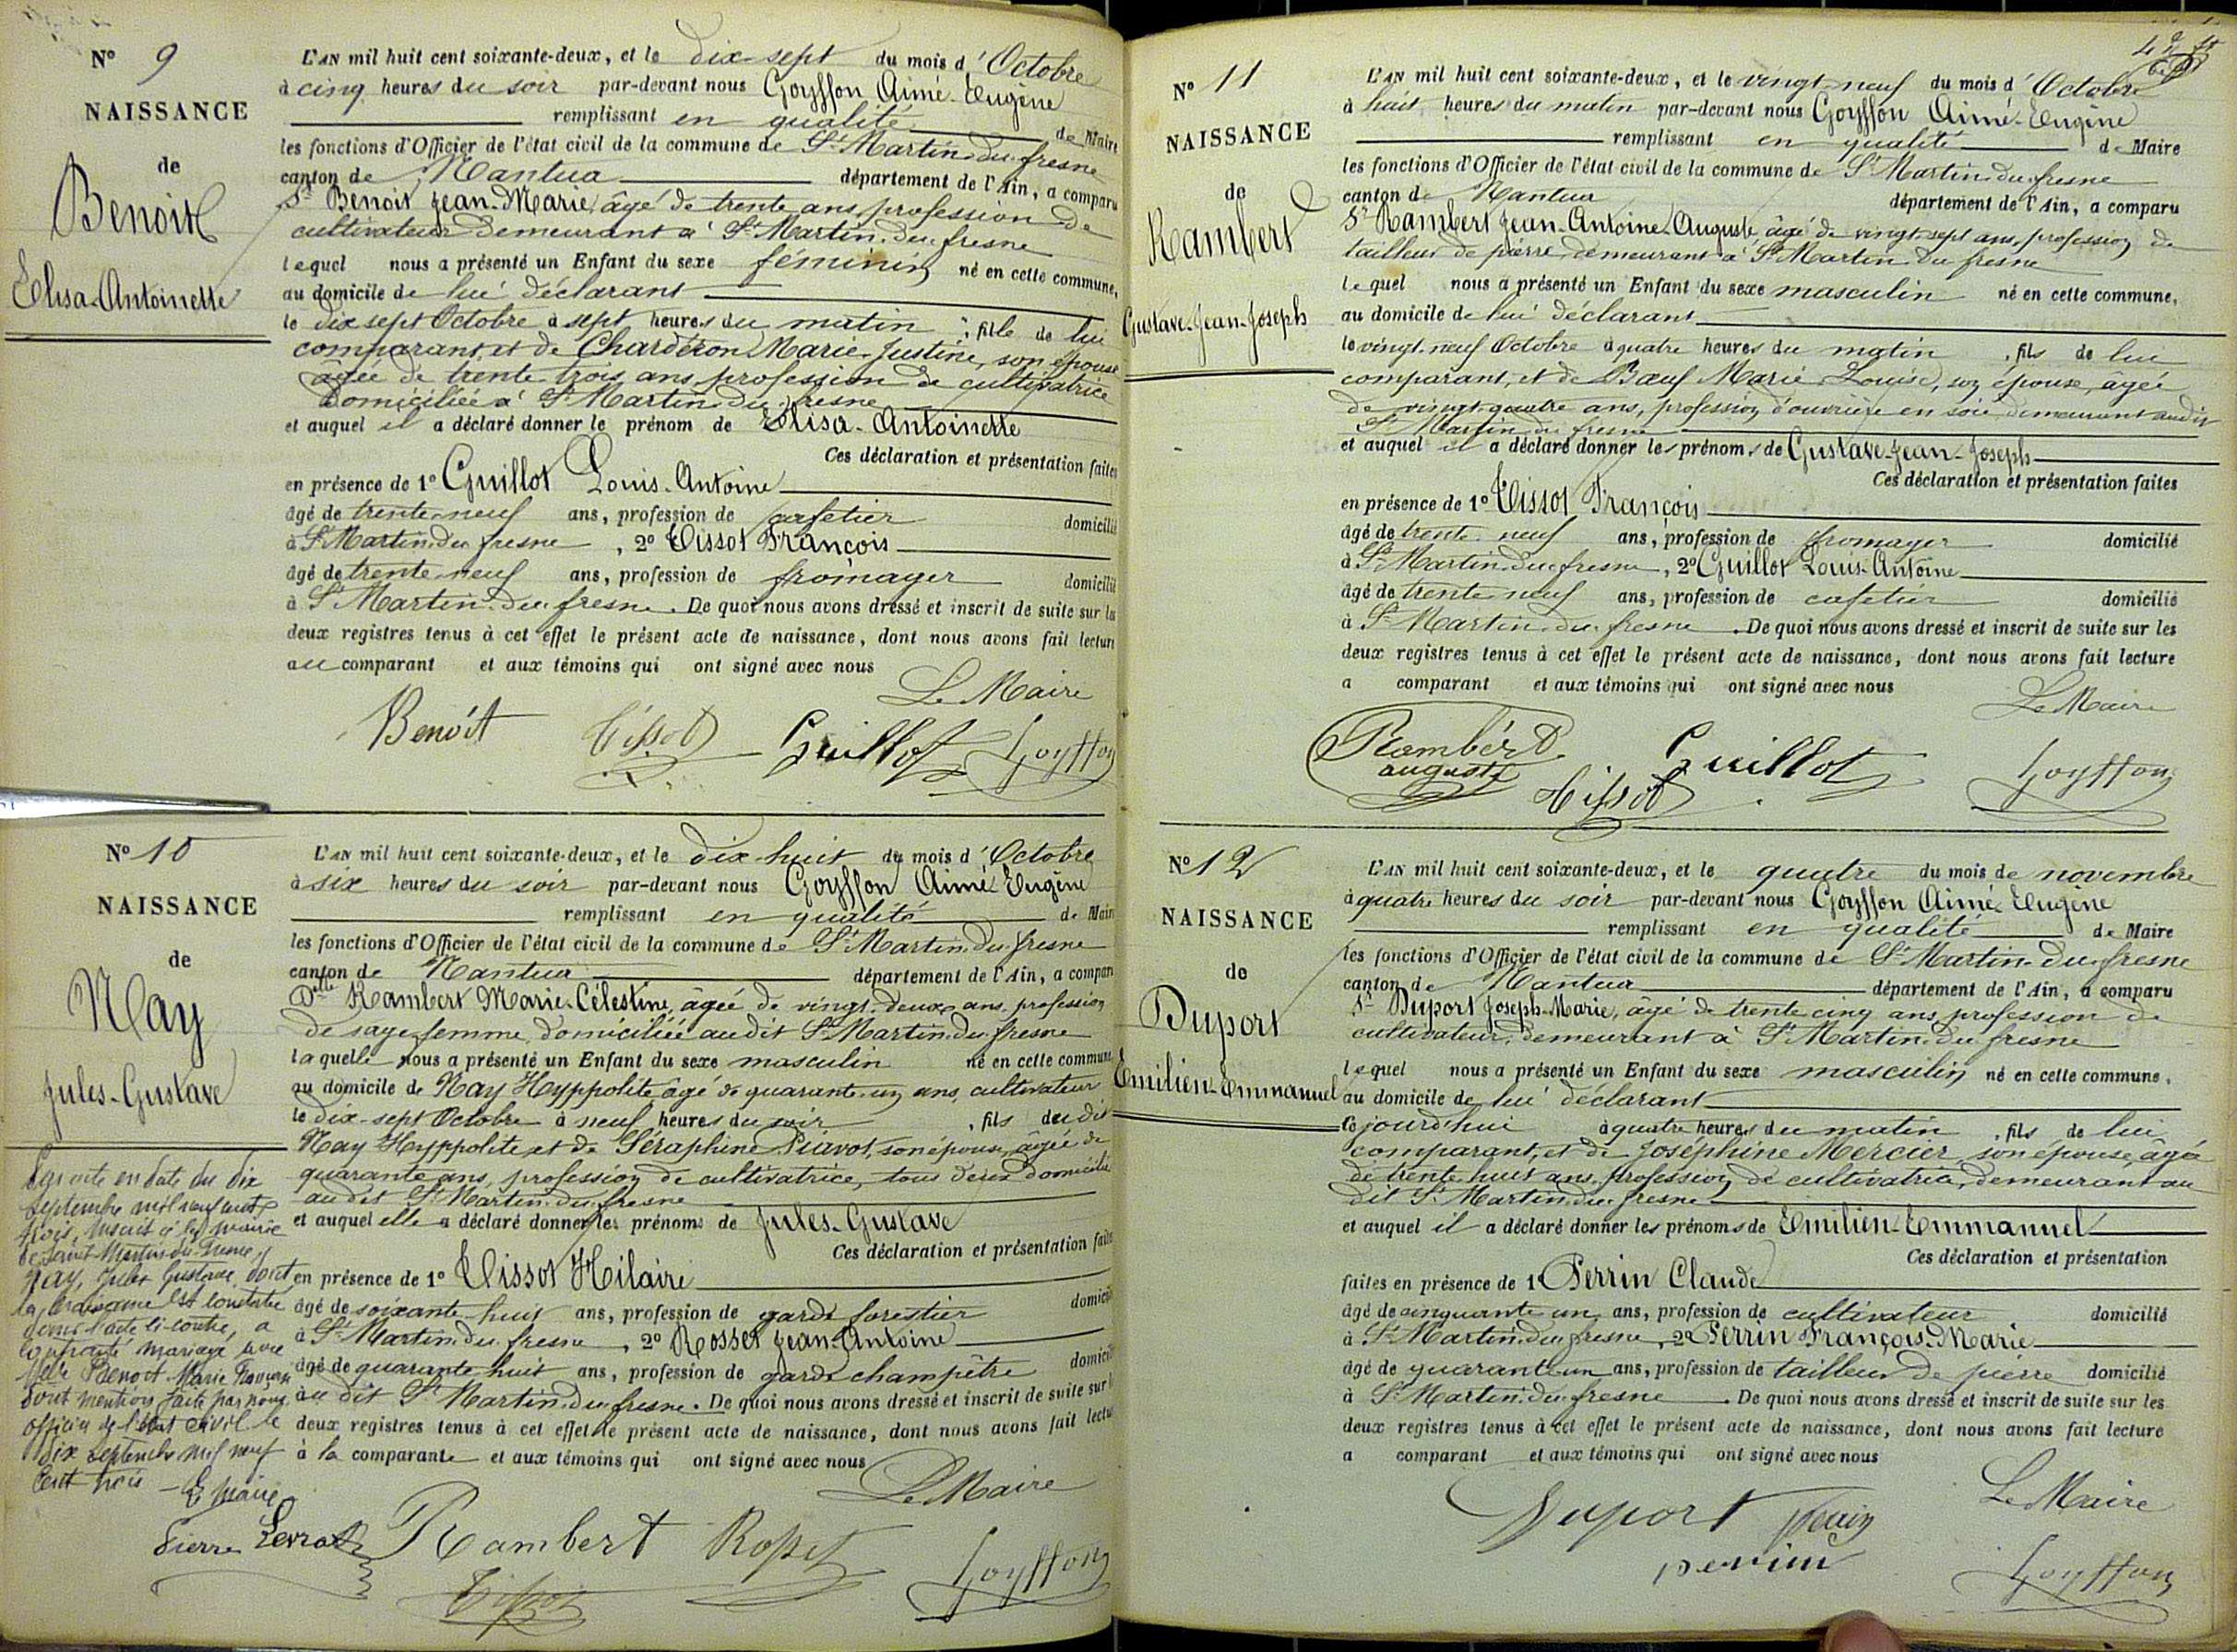 N° 9
NAISSANCE
de
Benoit
Elisa-Antoinette
L'AN mil huit cent soixante-deux, et le dix-sept du mois d'Octobre
à cinq heures du soir par-devant nous Goyffon Aimé-Eugène
remplissant en qualité de Maire
les fonctions d'Officier de l'état civil de la commune de St Martin-du-fresne
canton de Nantua département de l'Ain, a comparu
Sr Benoit Jean-Marie, âgé de trente ans, profession de
cultivateur demeurant à St Martin-du-fresne
lequel nous a présenté un Enfant du sexe féminin né en cette commune,
au domicile de lui déclarant
le dix sept Octobre à sept heures du matin ; fille de lui
comparant, et de Charderon Marie-Justine, son épouse
agée de trente-trois ans, profession de cultivatrice
domiciliée à St Martin-du-fresne
et auquel il a déclaré donner le prénom de Elisa-Antoinette
Ces déclaration et présentation faites
en présence de 1° Guillot Louis-Antoine
âgé de trente-neuf ans, profession de cafetier domicilié
à St Martin-du-fresne, 2° Tissot François
âgé de trente-neuf ans, profession de fromager domicilié
à St Martin-du-fresne. De quoi nous avons dressé et inscrit de suite sur la
deux registres tenus à cet effet le présent acte de naissance, dont nous avons fait lecture
au comparant et aux témoins qui ont signé avec nous
Le Maire
Benoit Tissot Guillot Goyffon
N° 10
NAISSANCE
de
Nay
Jules-Gustave
L'AN mil huit cent soixante-deux, et le dix-huit du mois d'Octobre
à six heures du soir par-devant nous Goyffon Aimé Eugène
remplissant en qualité de Maire
les fonctions d'Officier de l'état civil de la commune de St Martin-du-fresne
canton de Nantua département de l'Ain, a comparu
Delle Rambert Marie-Célestine, âgée de vingt-deux ans, profession
de sage-femme, domiciliée audit St Martin-du-fresne
laquelle nous a présenté un Enfant du sexe masculin né en cette commune
au domicile de Nay Hyppolite âgé de quarante-un ans, cultivateur
le dix-sept Octobre à neuf heures du soir, fils du dit
Nay Hyppolite, et de Séraphine Piavot, son épouse, agée de
quarante ans, profession de cultivatrice, tous deux domiciliés
au dit St Martin-du-fresne
et auquel elle a déclaré donner les prénoms de Jules-Gustave
Ces déclaration et présentation faites
en présence de 1° Tissot Hilaire
âgé de soixante-huit ans, profession de garde forestier domicilié
à St Martin-du-fresne, 2° Rosset Jean-Antoine
âgé de quarante huit ans, profession de garde champêtre domicilié
à au dit St Martin-du-fresne. De quoi nous avons dressé et inscrit de suite sur
deux registres tenus à cet effet le présent acte de naissance, dont nous avons fait lecture
à la comparante et aux témoins qui ont signé avec nous
Le Maire
Rambert Rosset Goyffon
Tissot
en date du dix
septembre mil neuf cent
trois, inscrit à la mairie
de Saint-Martin-du-Fresne,
Nay, Jules Gustave, dont
la naissance est constatée
dans l'acte ci-contre, a
contracté mariage avec
Melle Benoit Marie
Dont mention faite par nous
officier de l'état civil le
dix septembre mil neuf
cent trois — Le Maire
Pierre Levrat
N° 11
NAISSANCE
de
Rambert
Gustave-Jean-Joseph
L'AN mil huit cent soixante-deux, et le vingt-neuf du mois d'Octobre
à huit heures du matin par-devant nous Goyffon Aimé-Eugène
remplissant en qualité de Maire
les fonctions d'Officier de l'état civil de la commune de St Martin-du-fresne
canton de Nantua département de l'Ain, a comparu
Sr Rambert Jean-Antoine-Auguste, âgé de vingt-sept ans, profession de
tailleur de pierre, demeurant à St Martin-du-fresne
lequel nous a présenté un Enfant du sexe masculin né en cette commune,
au domicile de lui déclarant
le vingt-neuf Octobre à quatre heures du matin, fils de lui
comparant, et de Bœuf Marie-Louise, son épouse, âgée
de vingt-quatre ans, profession d'ouvrière en soie, demeurant audit
St Martin-du-fresne
et auquel il a déclaré donner les prénoms de Gustave-Jean-Joseph
Ces déclaration et présentation faites
en présence de 1° Tissot François
âgé de trente-neuf ans, profession de fromager domicilié
à St Martin-du-fresne, 2° Guillot Louis-Antoine
âgé de trente-neuf ans, profession de cafetier domicilié
à St Martin-du-fresne. De quoi nous avons dressé et inscrit de suite sur les
deux registres tenus à cet effet le présent acte de naissance, dont nous avons fait lecture
a comparant et aux témoins qui ont signé avec nous
Le Maire
Rambert Guillot Goyffon
auguste Tissot
N° 12
NAISSANCE
de
Duport
Emilien-Emmanuel
L'AN mil huit cent soixante-deux, et le quatre du mois de novembre
à quatre heures du soir par-devant nous Goyffon Aimé-Eugène
remplissant en qualité de Maire
les fonctions d'Officier de l'état civil de la commune de St Martin-du-fresne
canton de Nantua département de l'Ain, a comparu
Sr Duport Joseph-Marie, âgé de trente cinq ans profession de
cultivateur, demeurant à St Martin-du-fresne
lequel nous a présenté un Enfant du sexe masculin né en cette commune,
au domicile de lui déclarant
ce jourd'hui à quatre heures du matin, fils de lui
comparant, et de Joséphine Mercier, son épouse, âgée
de trente-huit ans, profession de cultivatrice, demeurant au
dit St Martin-du-fresne
et auquel il a déclaré donner les prénoms de Emilien-Emmanuel
Ces déclaration et présentation
faites en présence de 1° Perrin Claude
âgé de cinquante un ans, profession de cultivateur domicilié
à St Martin-du-fresne, 2° Perrin François-Marie
âgé de quarante-un ans, profession de tailleur de pierre domicilié
à St Martin-du-fresne. De quoi nous avons dressé et inscrit de suite sur les
deux registres tenus à cet effet le présent acte de naissance, dont nous avons fait lecture
a comparant et aux témoins qui ont signé avec nous
Le Maire
Duport Perrin
perrin Goyffon